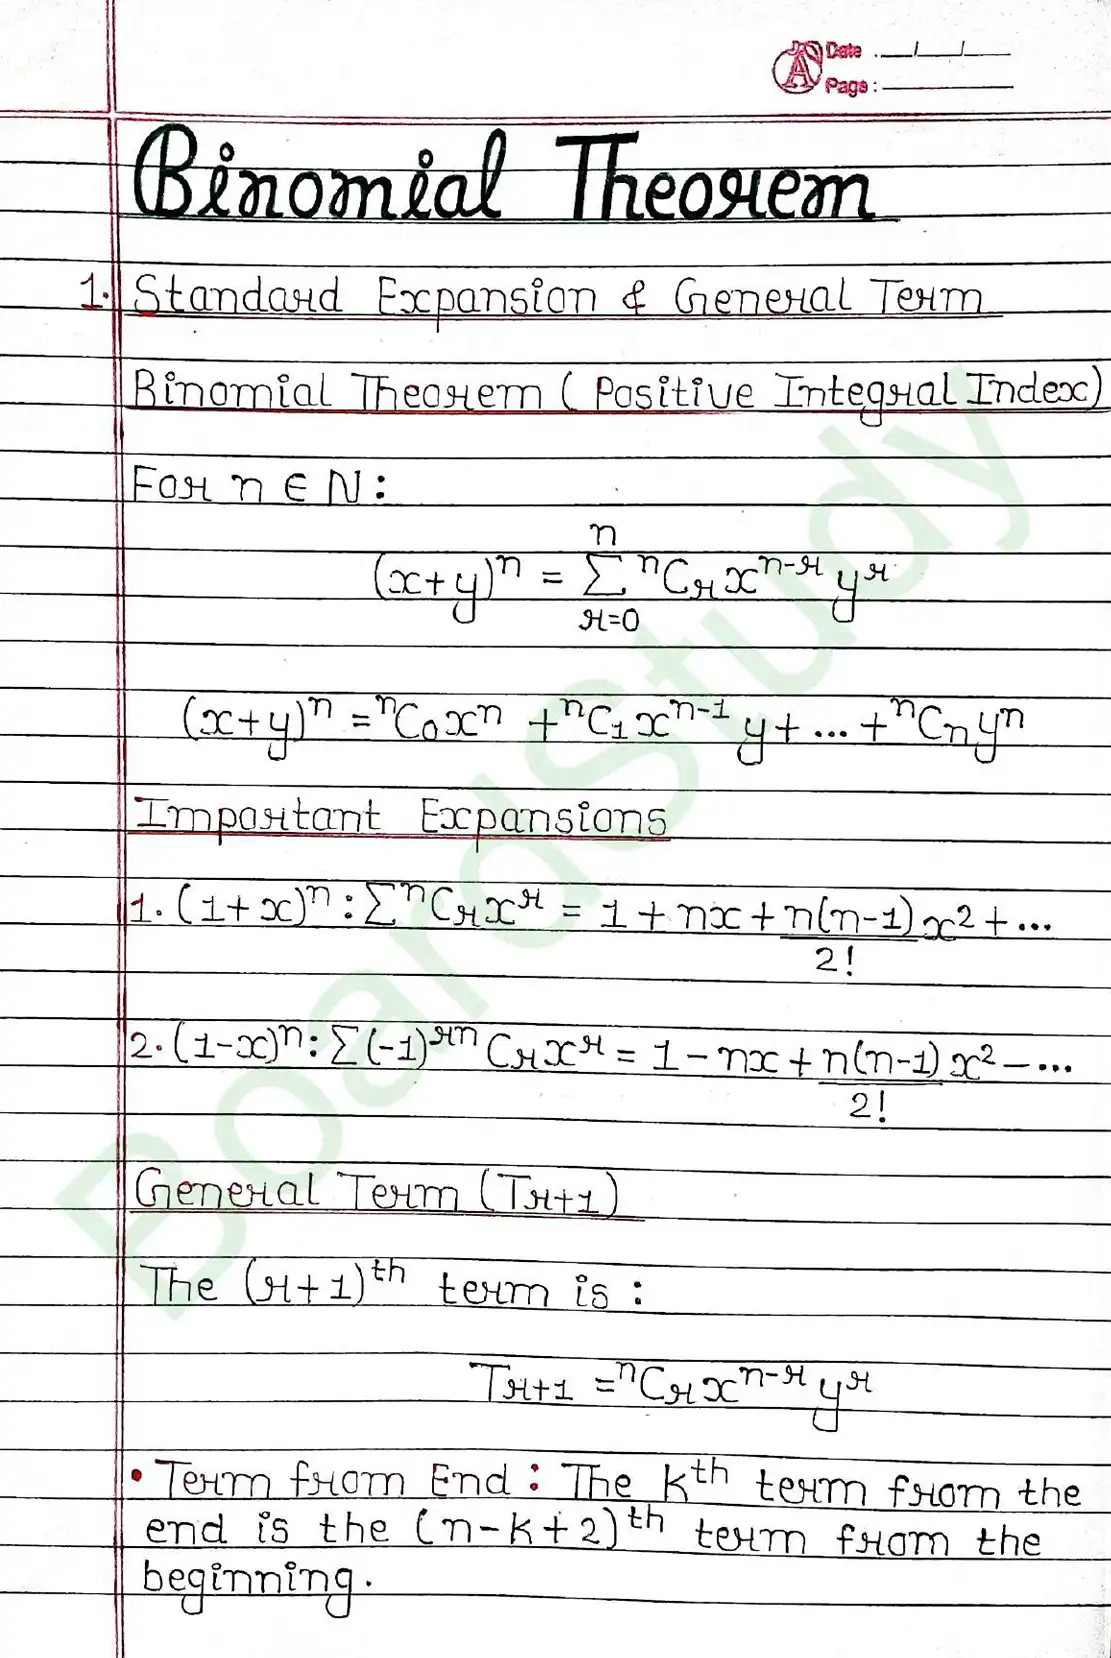 Date : __/__/__
Page : ______
Binomial Theorem
1. Standard Expansion & General Term
Binomial Theorem ( Positive Integral Index)
For n ∈ N :
(x+y)ⁿ = ∑ⁿᵣ₌₀ ⁿCᵣ xⁿ⁻ʳ yʳ
(x+y)ⁿ = ⁿC₀xⁿ + ⁿC₁xⁿ⁻¹y + ... + ⁿCₙyⁿ
Important Expansions
1. (1+x)ⁿ : ∑ ⁿCᵣxʳ = 1 + nx + n(n-1)/2! x² + ...
2. (1-x)ⁿ : ∑ (-1)ʳ ⁿCᵣxʳ = 1 - nx + n(n-1)/2! x² - ...
General Term (Tᵣ₊₁)
The (r+1)ᵗʰ term is :
Tᵣ₊₁ = ⁿCᵣ xⁿ⁻ʳ yʳ
• Term from End : The Kᵗʰ term from the
end is the (n-k+2)ᵗʰ term from the
beginning.
BoardStudy